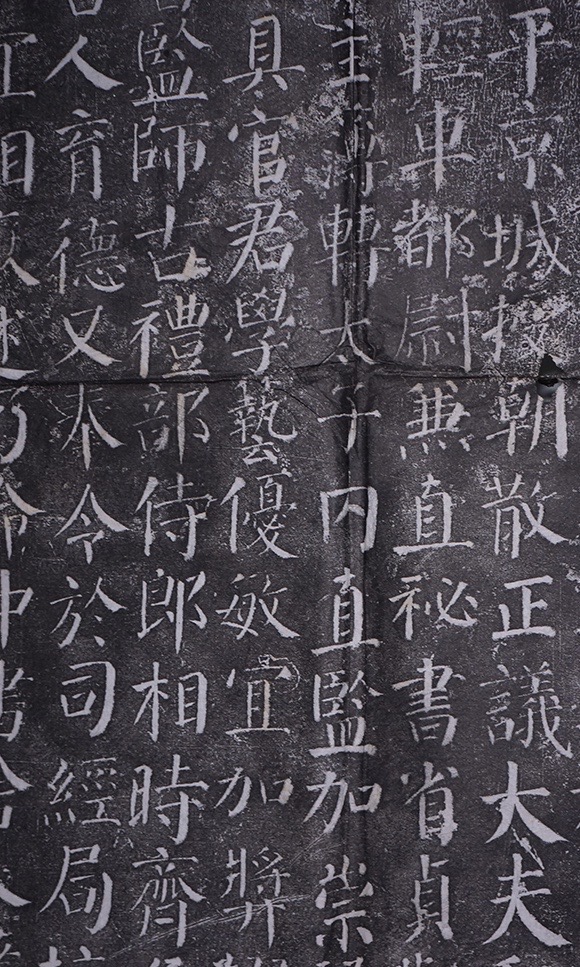 平京城授朝散正議大夫
輕車都尉兼直秘書省貞
主簿轉太子內直監加崇
具官君學藝優敏宜加獎
監師古禮部侍郎相時齊
人育德又奉令於司經局